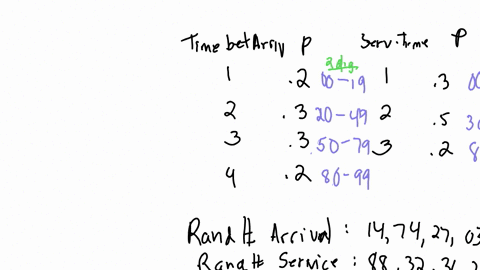 Time bet Arriv P Serv. Time P
2 dig.
1 .2 00-19 1 .3 00
2 .3 20-49 2 .5 30
3 .3 50-79 3 .2 8
4 .2 80-99
Rand# Arrival : 14, 74, 27, 03
Rand# Service : 88, 32, 36, 2